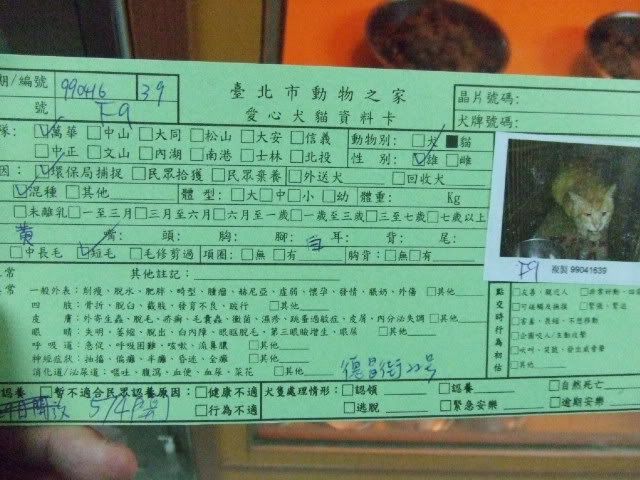 期/編號 990416 39
臺北市動物之家
愛心犬貓資料卡
號 F9
晶片號碼:
犬牌號碼:
隊: ☑萬華 □中山 □大同 □松山 □大安 □信義
□中正 □文山 □內湖 □南港 □士林 □北投
動物別: □犬 ■貓
性 別: ☑雄 □雌
因: ☑環保局捕捉 □民眾拾獲 □民眾棄養 □外送犬 □回收犬
☑混種 □其他 體 型: □大 □中 □小 □幼 體重: Kg
□未離乳 □一至三月 □三月至六月 □六月至一歲 □一歲至三歲 □三至七歲 □七歲以上
黃 嘴: 頭: 胸: 腳: 白 耳: 背: 尾:
□中長毛 ☑短毛 □毛修剪過 項圈: □無 □有 胸背: □無 □有
F9 複製 99041639
常 其他註記:
常 一般外表: 削瘦、脫水、肥胖、畸型、腫瘤、赫尼亞、虛弱、懷孕、發情、脹奶、外傷 □其他
四 肢: 骨折、脫臼、截肢、發育不良、跛行 □其他
皮 膚: 外寄生蟲、脫毛、疥癬、毛囊蟲、黴菌、濕疹、跳蚤過敏症、皮屑、內分泌失調 □其他
眼 睛: 失明、萎縮、脫出、白內障、眼瞼脫毛、第三眼瞼增生、眼屎 □其他
呼 吸 道: 急促、呼吸困難、咳嗽、流鼻膿 □其他
神經症狀: 抽搐、偏癱、半癱、昏迷、全癱 □其他
消化道/泌尿道: 嘔吐、腹瀉、血便、血尿、菜花 □其他
德昌街22號
點交時行為初估
□友善、親近人 □非常好動
□可碰觸及撫摸 □緊張、緊迫
□害羞、畏縮、不想移動
□企圖咬人/主動攻擊
□吠叫、咆哮、發出威脅聲
□其他
認養 □暫不適合民眾認養原因: □健康不適 □行為不適
5/4
犬隻處理情形: □認領 □認養 □自然死亡
□逃脫 □緊急安樂 □逾期安樂